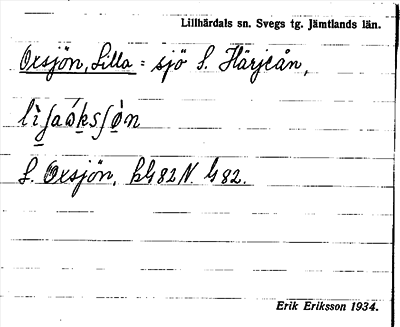 Lillhärdals sn. Svegs tg. Jämtlands län.
Oxsjön, Lilla = sjö S. Härjeån,
lìʃaóksʃòn
L. Oxsjön, bl 82 N. G 82.
Erik Eriksson 1934.